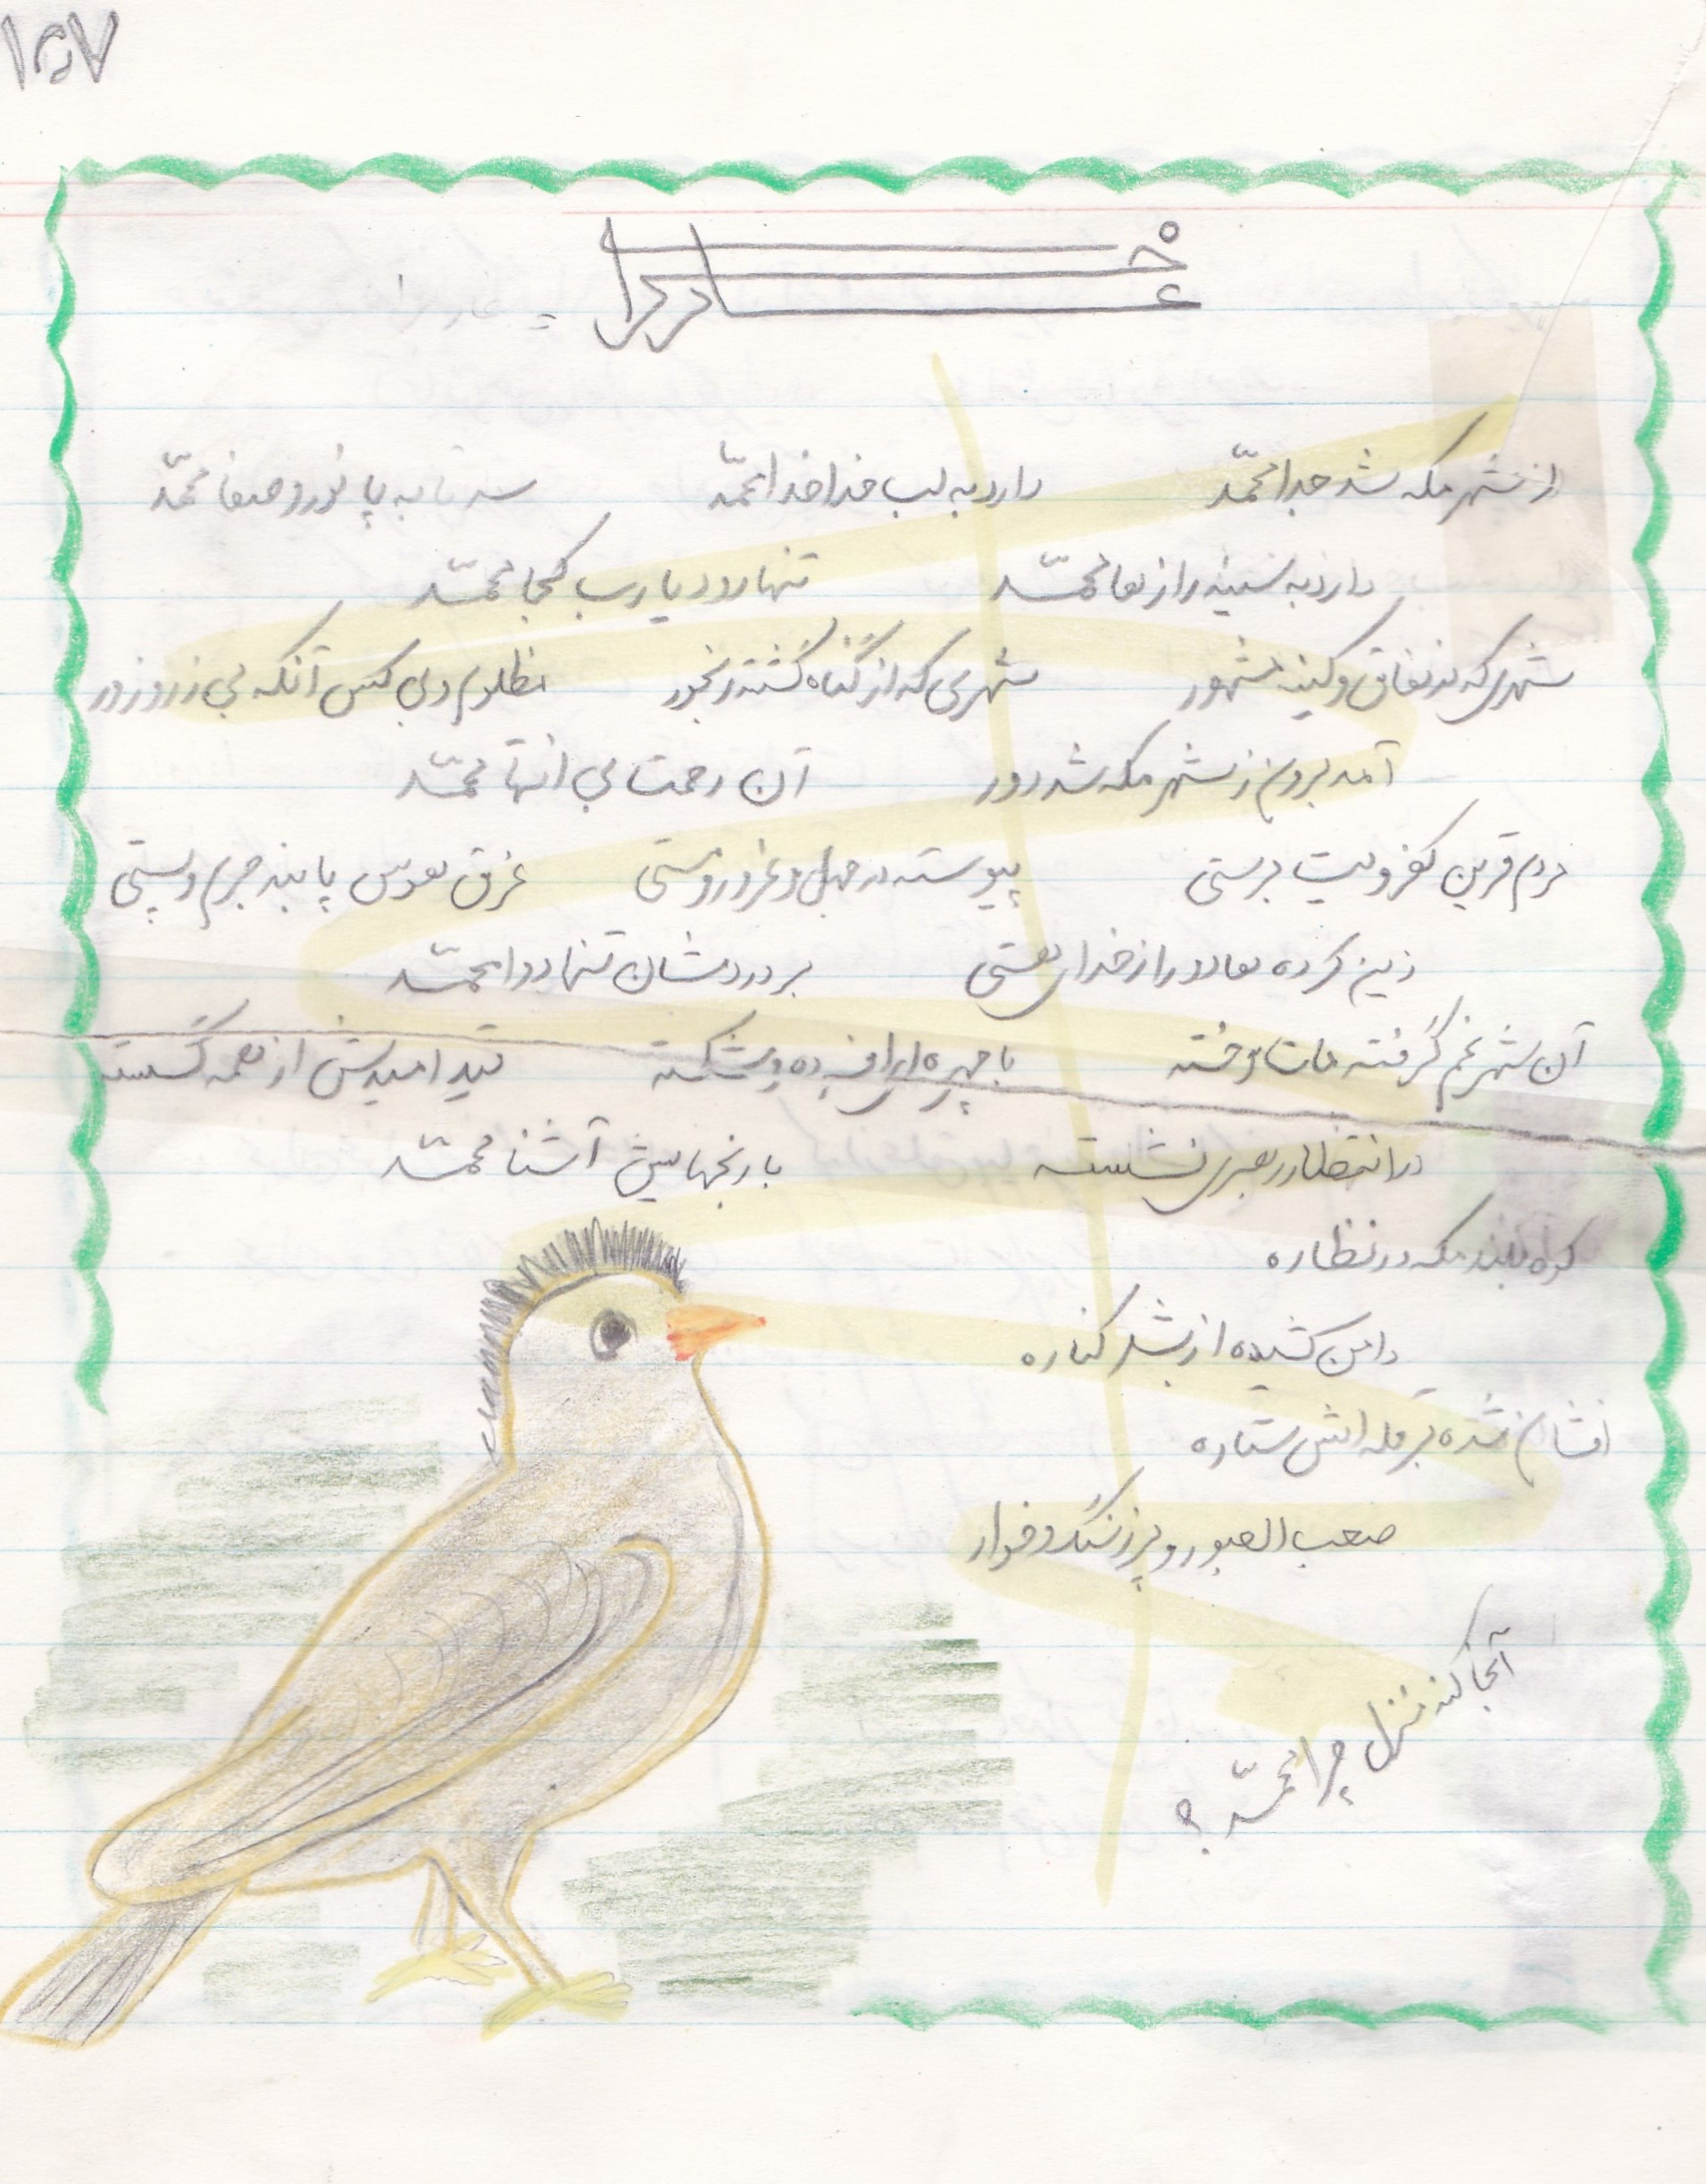 ۱۵۷
غار حرا
از شهر مکه شد جدا محمّد دارد به لب خدا خدا محمّد سر تا به پا نور و صفا محمّد
دارد به سینه رازها محمّد تنها رود یا رب کجا محمّد
شهری که در نفاق و کینه مشهور شهری که از گناه گشته رنجور مظلوم و بی کس آنکه بی زر و زور
آمد برون ز شهر مکه شد دور آن رحمت بی انتها محمّد
مردم قرین کفر و بت پرستی پیوسته در جهل و غرور و مستی غرق هوس پابند جرم و پستی
زین کرده ها دور از خدای هستی بر دردشان تنها دوا محمّد
آن شهر غم گرفته مات و خسته با چهره ای افسرده و شکسته قید امیدش از همه گسسته
در انتظار رهبری نشسته با رنجهایش آشنا محمّد
کوه بلند مکه در نظاره
دامن کشیده از بشر کناره
افشان شده بر قله اش ستاره
صعب العبور و پر ز سنگ و خار
آنجا کند منزل چرا محمّد ؟